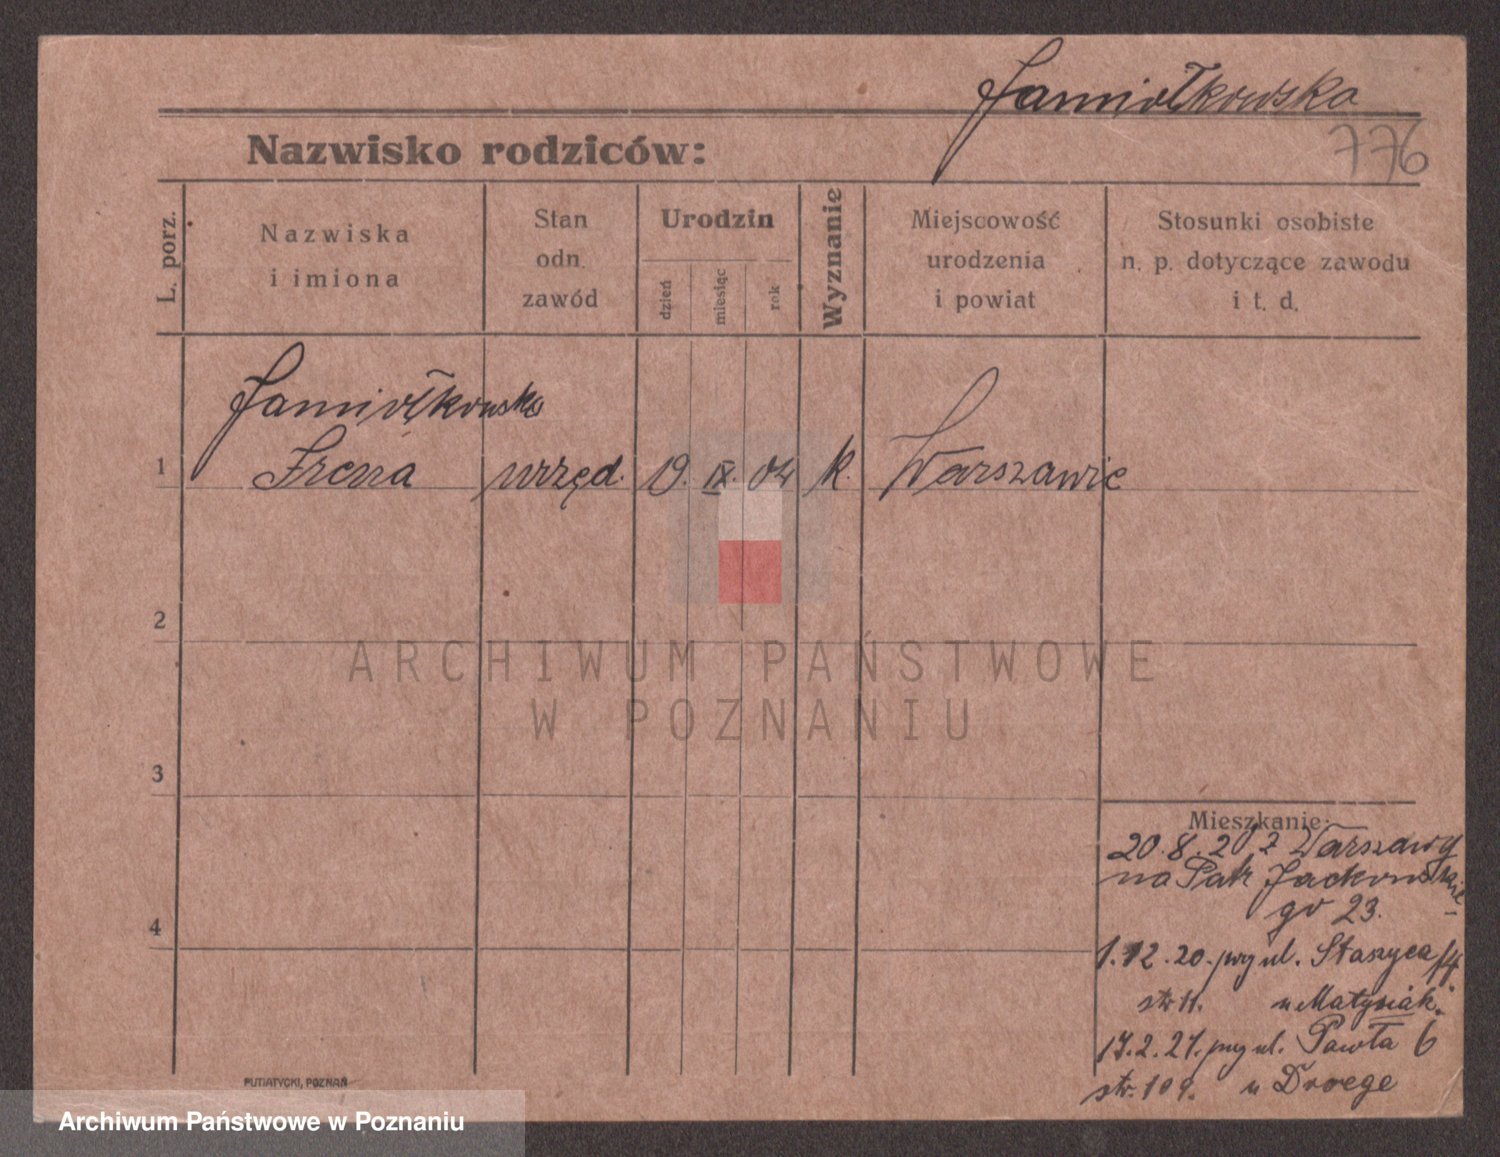 Jamiołkowska
776
Nazwisko rodziców:
L. porz.
Nazwiska
i imiona
Stan
odn.
zawód
Urodzin
dzień
miesiąc
rok
Wyznanie
Miejscowość
urodzenia
i powiat
Stosunki osobiste
n. p. dotyczące zawodu
i t. d.
Jamiołkowska
1 Irena urzęd. 19. IX. 04 k. Warszawie
2
3
4
Mieszkanie:
20.8.20 z Warszawy
na Patr Jackowskie-
go 23.
1.12.20. przy ul. Staszyca
str 11. u Matysiak.
17.2.21. przy ul. Pawła 6
str. 109. u Droege
PUTIATYCKI, POZNAŃ
ARCHIWUM PAŃSTWOWE
W POZNANIU
Archiwum Państwowe w Poznaniu